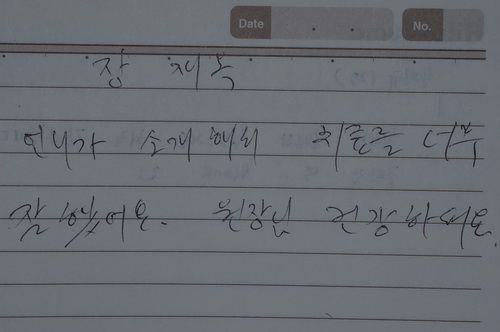 Date . . No.
장
언니가 소개 해서 치료를 너무
잘 했어요. 원장님 건강 하세요.